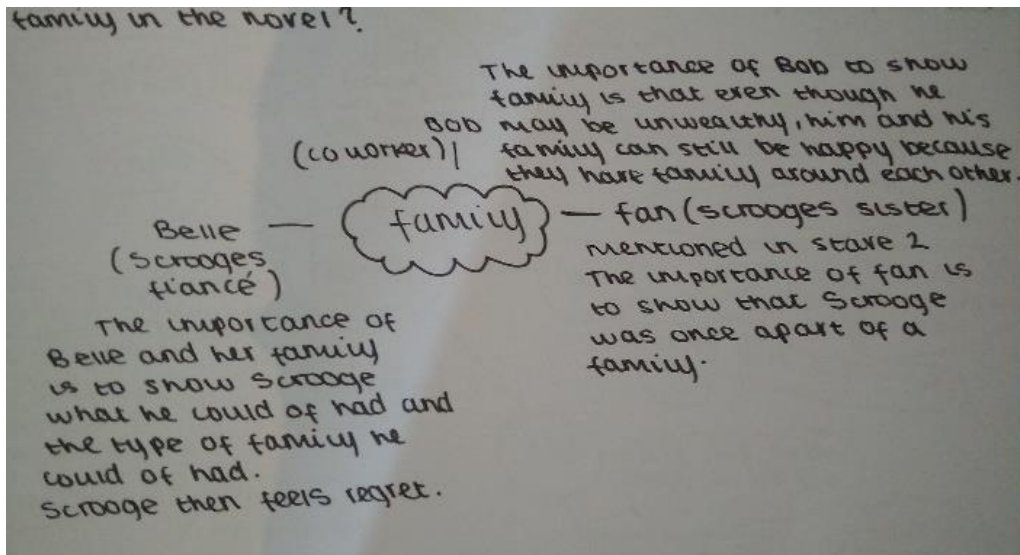 family in the novel?
The importance of Bob to show
family is that even though he
Bob may be unwealthy, him and his
(coworker) family can still be happy because
they have family around each other.
family
Belle
(scrooges
fiancé)
The importance of
Belle and her family
is to show Scrooge
what he could of had and
the type of family he
could of had.
Scrooge then feels regret.
fan (scrooges sister)
mentioned in stave 2
The importance of fan is
to show that Scrooge
was once apart of a
family.